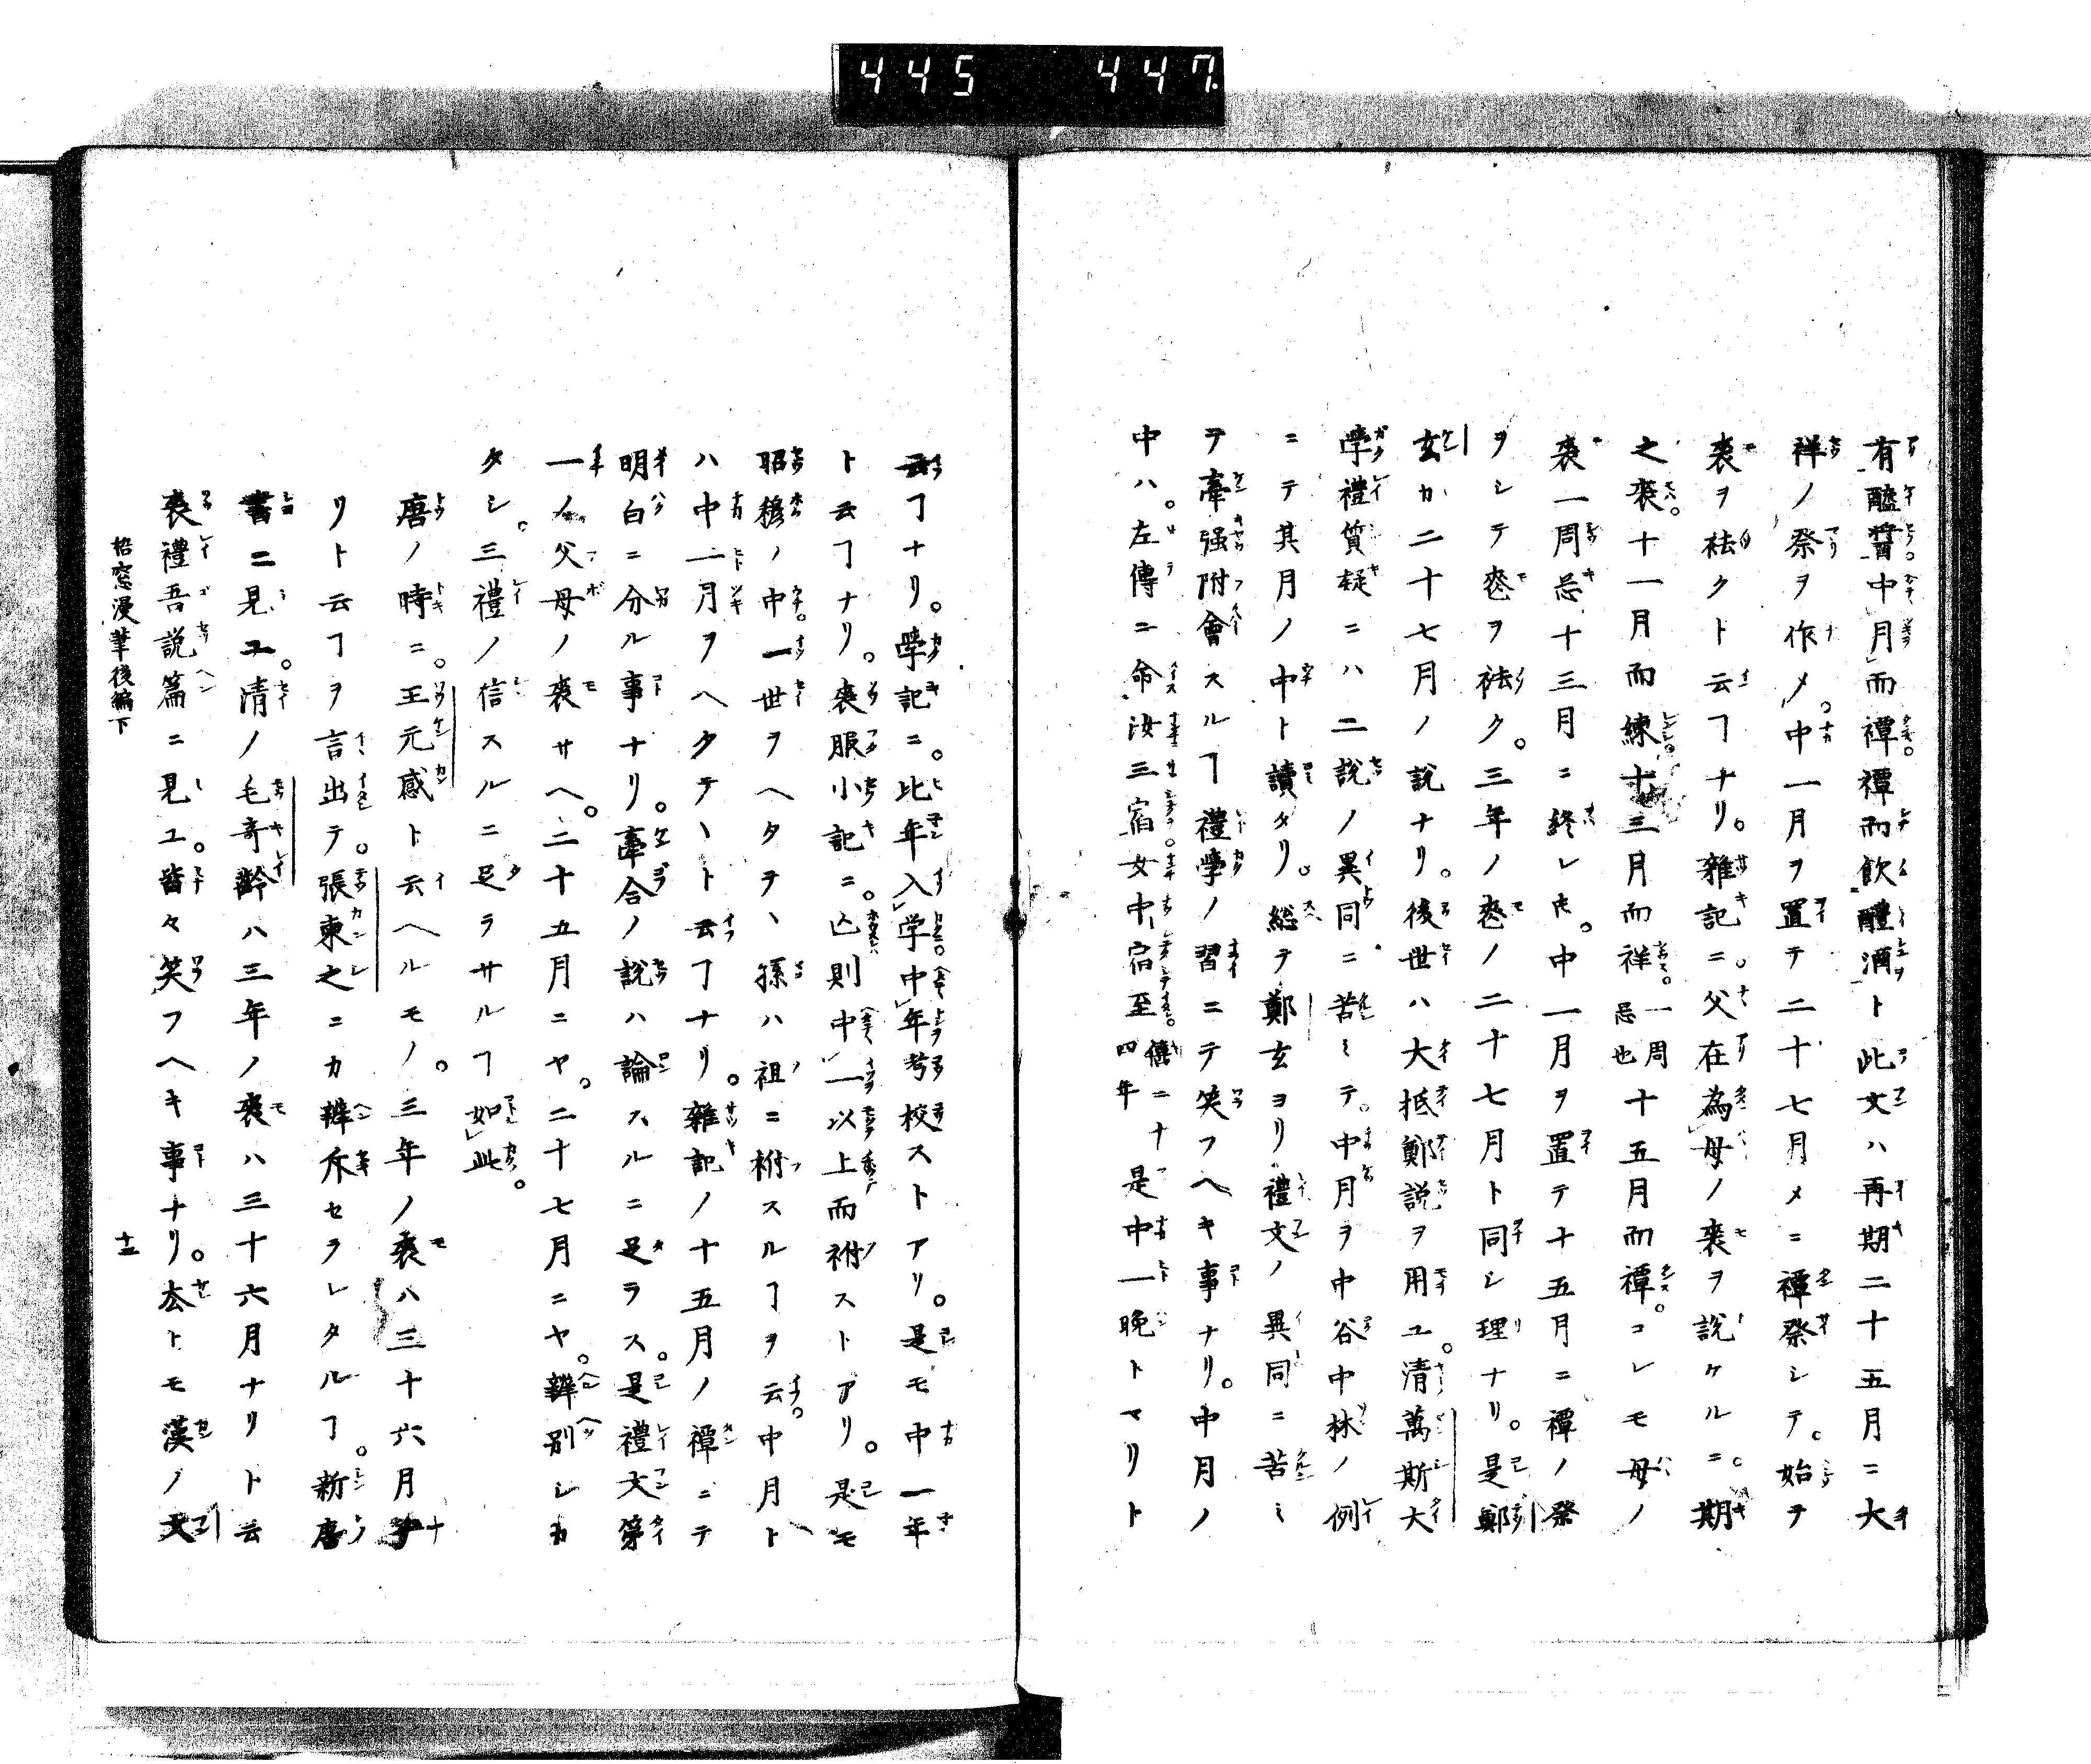 445 447
有醯醬。中月而禫。禫而飲醴酒ト此文ハ再期二十五月ニ大
祥ノ祭ヲ作メ。中一月ヲ置テ二十七月メニ禫祭シテ。始テ
喪ヲ祛クト云ヿナリ。雜記ニ。父在為母ノ喪ヲ說ケルニ。期
之喪。十一月而練十三月而祥。一周忌也十五月而禫。コレモ母ノ
喪一周忌十三月ニ終レ𪜈。中一月ヲ置テ十五月ニ禫ノ祭
ヲシテ喪ヲ祛ク。三年ノ喪ノ二十七月ト同シ理ナリ。是鄭
玄カ二十七月ノ說ナリ。後世ハ大抵鄭說ヲ用ユ。清萬斯大
學禮質疑ニハ二說ノ異同ニ苦ミテ。中月ヲ中谷中林ノ例
ニテ其月ノ中ト讀タリ。総テ鄭玄ヨリ禮文ノ異同ニ苦ミ
テ牽强附會スルヿ禮學ノ習ニテ笑フヘキ事ナリ。中月ノ
中ハ。左傳ニ命汝三宿女中宿至。僖二十四年是中一晩トマリト
云ヿナリ。學記ニ。比年入学。中年考校ストアリ。是モ中一年
ト云ヿナリ。喪服小記ニ。亡則中一以上而祔ストアリ。是モ
昭穆ノ中。一世ヲヘタヲヽ孫ハ祖ニ祔スルヿヲ云。中月ト
ハ中一月ヲヘタテヽト云ヿナリ。雜記ノ十五月ノ禫ニテ
明白ニ分ル事ナリ。牽合ノ說ハ論スルニ足ラス。是禮文第
一ノ父母ノ喪サヘ。二十五月ニヤ。二十七月ニヤ。辨別シカ
タシ。三禮ノ信スルニ足ラサルヿ如此。
唐ノ時ニ。王元感ト云ヘルモノ。三年ノ喪ハ三十六月ナ
リト云ヿヲ言出テ。張東之ニカ辨斥セラレタルヿ。新唐
書ニ見ユ。清ノ毛奇齡ハ三年ノ喪ハ三十六月ナリト云
喪禮吾說篇ニ見ユ。皆々笑フヘキ事ナリ。尤トモ漢ノ文
梧窓漫筆後編下
十三